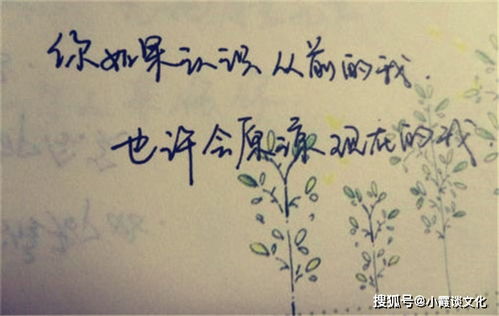 你如果认识从前的我.
也许会原谅现在的我
搜狐号@小霞谈文化